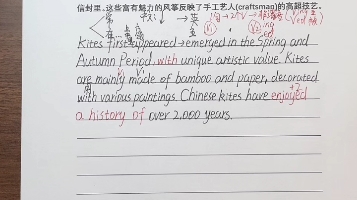 信封里,这些富有魅力的风筝反映了手工艺人(craftsman)的高超技艺。
Kites first appeared → emerged in the Spring and
Autumn Period, with unique artistic value. Kites
are mainly made of bamboo and paper, decorated
with various paintings. Chinese kites have enjoyed
a history of over 2,000 years.